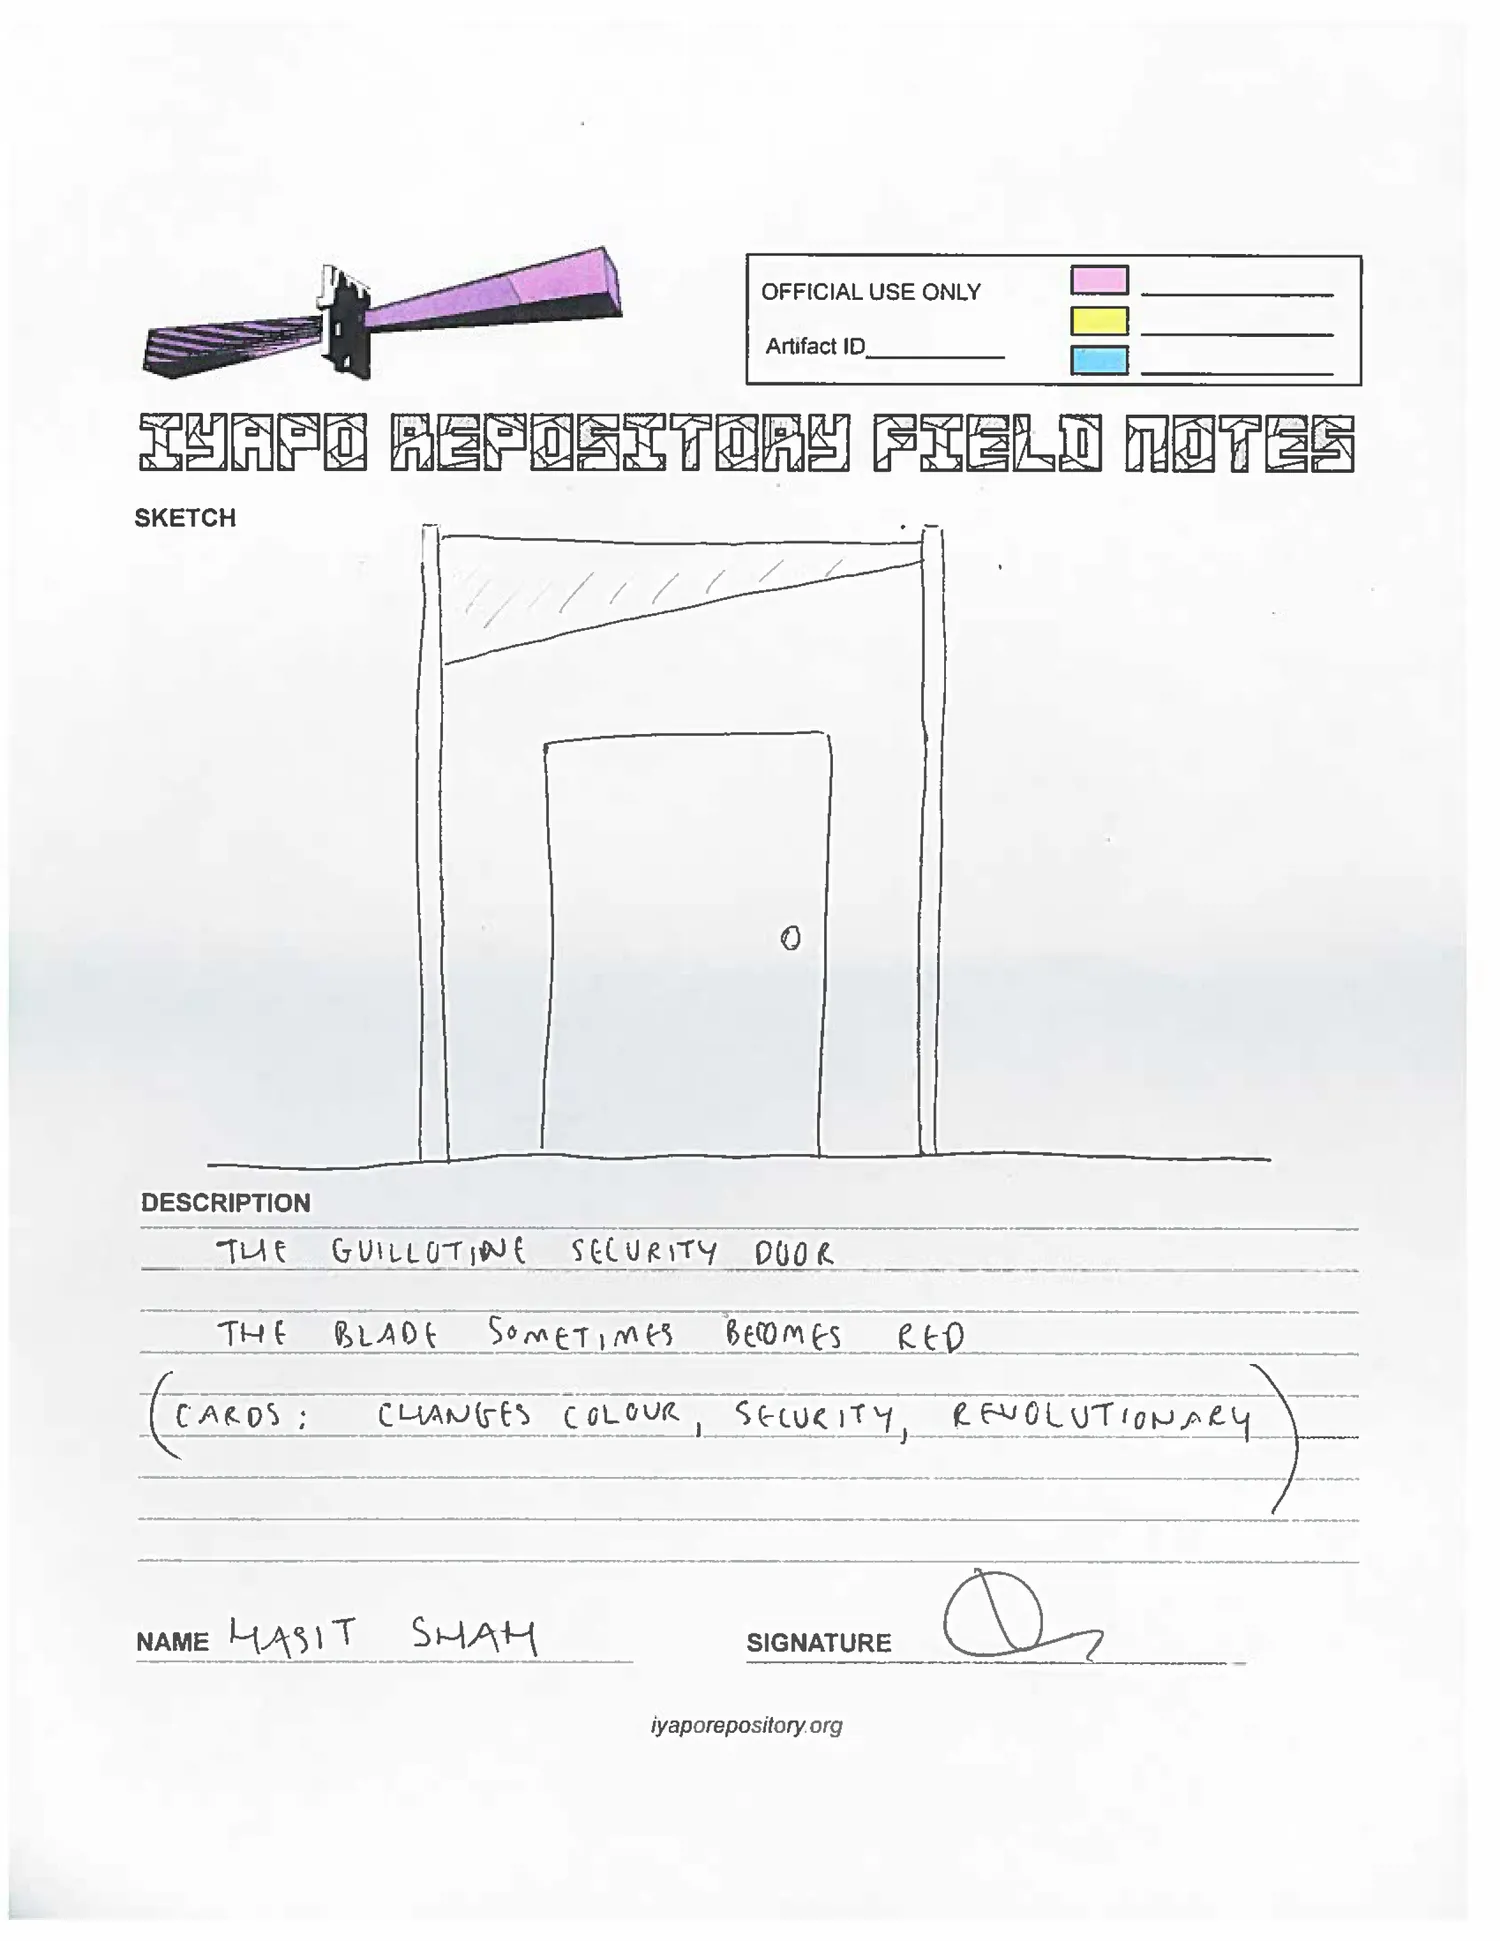 OFFICIAL USE ONLY
Artifact ID
IYAPO REPOSITORY FIELD NOTES
SKETCH
DESCRIPTION
THE GUILLOTINE SECURITY DOOR
THE BLADE SOMETIMES BECOMES RED
(CARDS: CHANGES COLOUR, SECURITY, REVOLUTIONARY)
NAME HASIT SHAH
SIGNATURE
iyaporepository.org